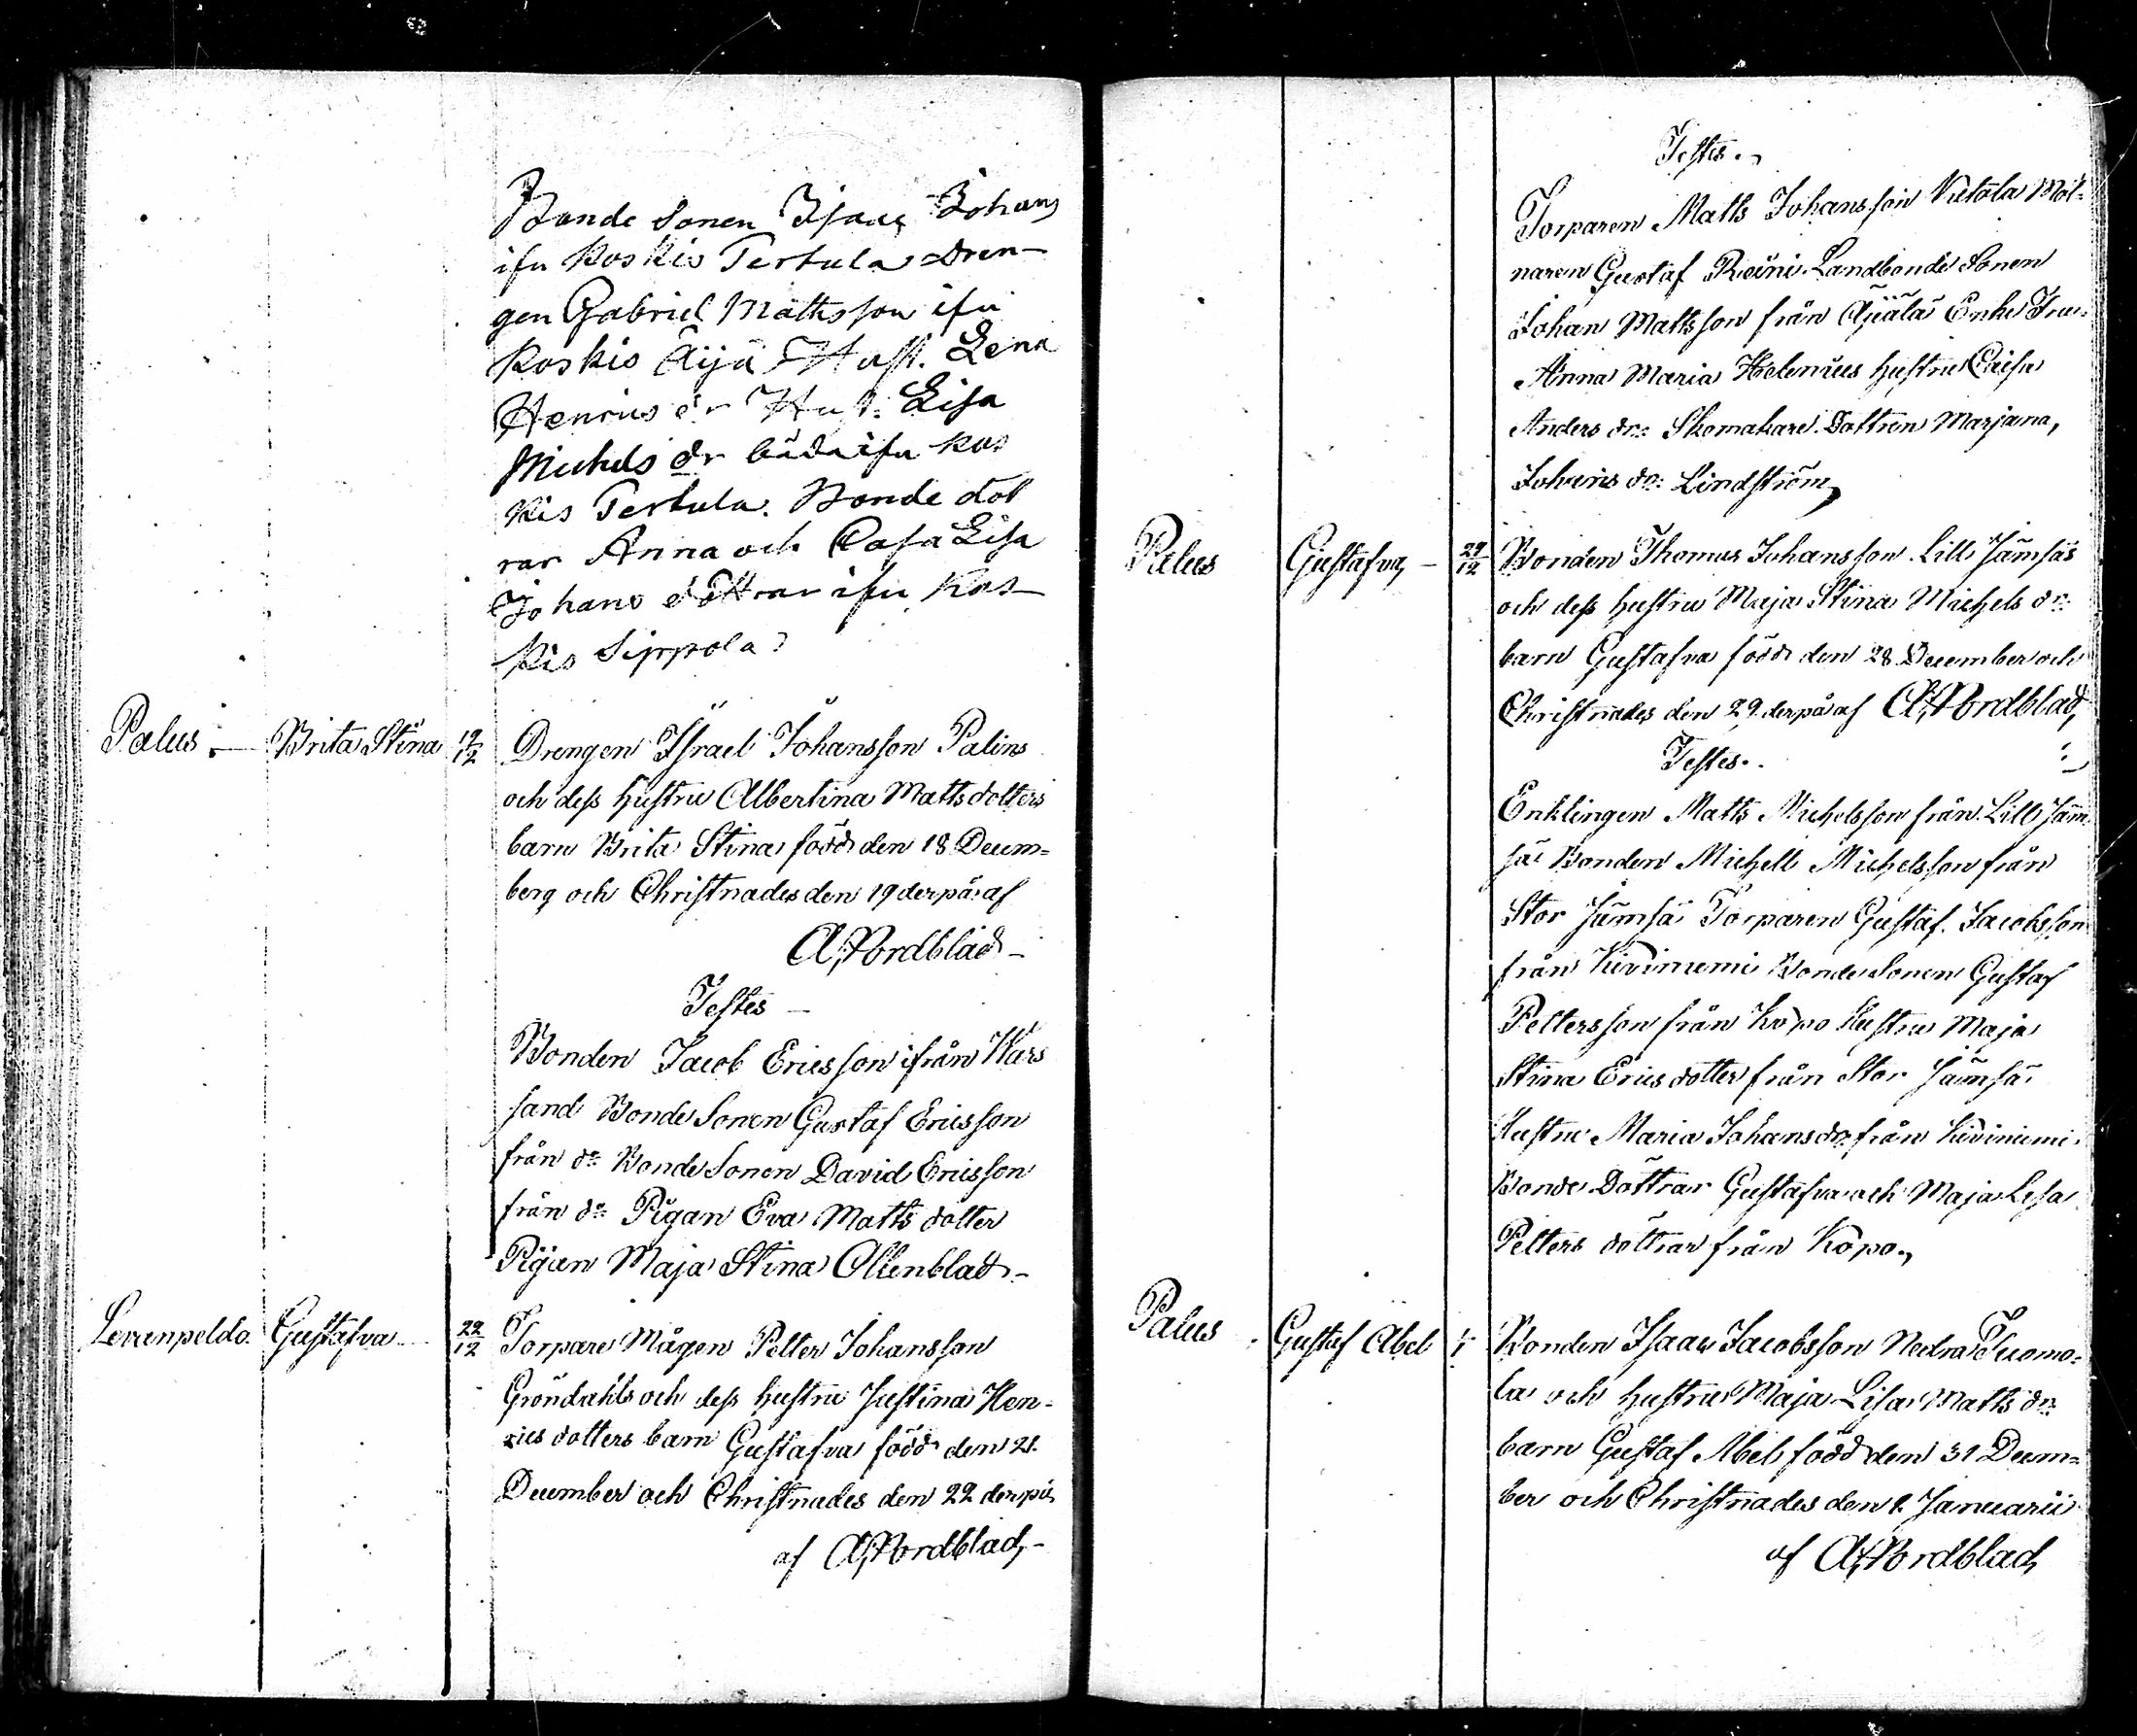 Bonde Sonen Isaac Johans
ifrn Koskis Tertula Dren-
gen Gabriel Mattsson ifrn
Koskis Äijä Hust. Lena
Henrics dr Hust. Lisa
Michels dr båda ifrn Kos
kis Tertula. Bonde döt
rar Anna och Cajsa Lisa
Johans döttrar ifrn Kos-
kis Sippola
Palus. — Brita Stina 19/12 Drengen Israel Johansson Palins
och dess hustru Albertina Mattsdotters
barn Brita Stina född den 18 Decem=
berg och Christnades den 19 derpå af
A. Nordblad -
Testes -
Bonden Jacob Ericsson ifrån Kars
sand Bonde Sonen Gustaf Ericsson
från do Bonde Sonen David Ericsson
från do Pigan Eva Matts dotter
Pigan Maja Stina Allenblad -
Levänpeldo. Gustafva 22/12 Torpare Mågen Petter Johansson
Gröndahls och dess hustru Justina Hen-
rics dotters barn Gustafva född den 21.
December och Christnades den 22 derpå
af A. Nordblad, -
Testes.
Torparen Matts Johansson Kutala Möl-
naren Gustaf Reini. Landbonde Sonen
Johan Mattsson från Äijälä Enke Fru
Anna Maria Helenius hustru Caisa
Anders dr: Skomakare Dottren Marjana,
Johans dr: Lindström,
Palus Gustafva, - 29/12 Bonden Thomas Johansson Lill Jämsäs
och dess hustru Maja Stina Michels dr:
barn Gustafva född den 28 December och
Christnades den 29 derpå af A. Nordblad,
Testes.
Enklingen Matts Michelsson från Lill Jäm
sä Bonden Michell Michelsson från
Stor Jämsä Torparen Gustaf Jacobsson
från Kiviniemi Bonde Sonen Gustaf
Pettersson från Köpo Hustru Maja
Stina Erics dotter från Stor Jämsä
Hustru Maria Johansdr från Kiviniemi
Bonde Döttrar Gustafva och Maja Lisa
Petters döttrar från Köpo.,
Palus. Gustaf Abel 1/1 Bonden Isaac Jacobsson Nedra Tuomo-
la och hustru Maja Lisa Matts dr:
barn Gustaf Abel född den 31 Decem=
ber och Christnades den 1 Januarii
af A. Nordblad,